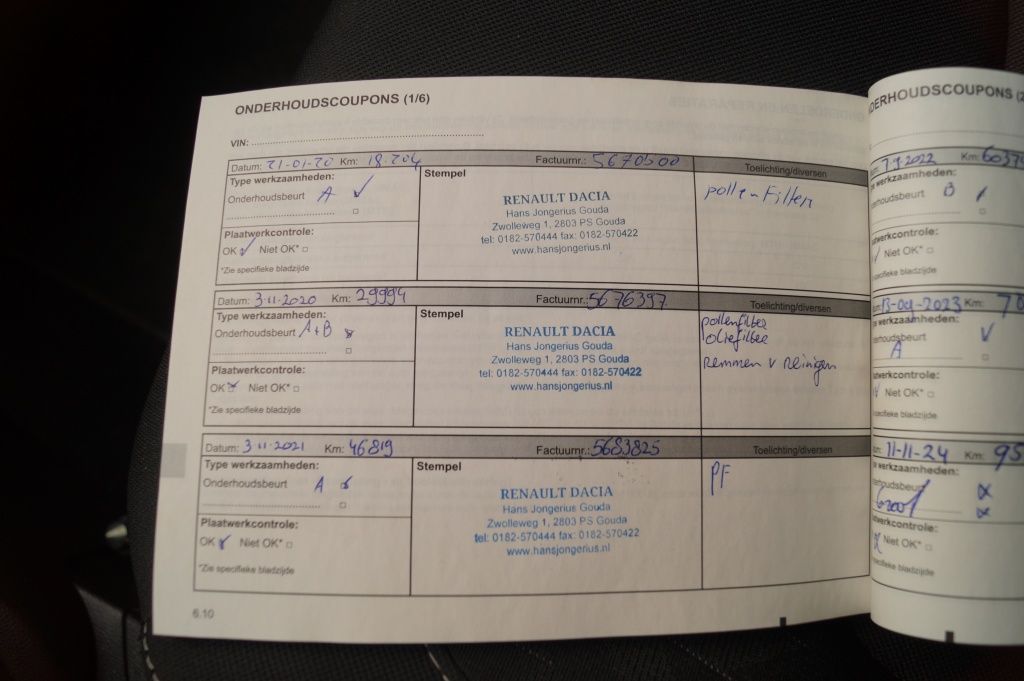 ONDERHOUDSCOUPONS (1/6)
VIN:
Datum: 21-01-20 Km: 18.204 Factuurnr.: 5670500 Toelichting/diversen
Type werkzaamheden:
Onderhoudsbeurt A ✓
Stempel
RENAULT DACIA
Hans Jongerius Gouda
Zwolleweg 1, 2803 PS Gouda
tel: 0182-570444 fax: 0182-570422
www.hansjongerius.nl
pollenfilter
Plaatwerkcontrole:
OK ✓ Niet OK* □
*Zie specifieke bladzijde
Datum: 3-11-2020 Km: 29994 Factuurnr.: 5676397 Toelichting/diversen
Type werkzaamheden:
Onderhoudsbeurt A+B
Stempel
RENAULT DACIA
Hans Jongerius Gouda
Zwolleweg 1, 2803 PS Gouda
tel: 0182-570444 fax: 0182-570422
www.hansjongerius.nl
pollenfilter
oliefilter
remmen v reinigen
Plaatwerkcontrole:
OK Niet OK* □
*Zie specifieke bladzijde
Datum: 3-11-2021 Km: 46819 Factuurnr.: 5683825 Toelichting/diversen
Type werkzaamheden:
Onderhoudsbeurt A
Stempel
RENAULT DACIA
Hans Jongerius Gouda
Zwolleweg 1, 2803 PS Gouda
tel: 0182-570444 fax: 0182-570422
www.hansjongerius.nl
PF
Plaatwerkcontrole:
OK Niet OK* □
*Zie specifieke bladzijde
6.10
DERHOUDSCOUPONS (2
2022 Km:
pe werkzaamheden:
nderhoudsbeurt B
aatwerkcontrole:
Niet OK* □
e specifieke bladzijde
13-Oct-2023 Km: 70
pe werkzaamheden:
erhoudsbeurt
A
aatwerkcontrole:
Niet OK* □
e specifieke bladzijde
11-11-24 Km: 95
pe werkzaamheden:
derhoudsbeurt
Groot
aatwerkcontrole:
Niet OK* □
specifieke bladzijde